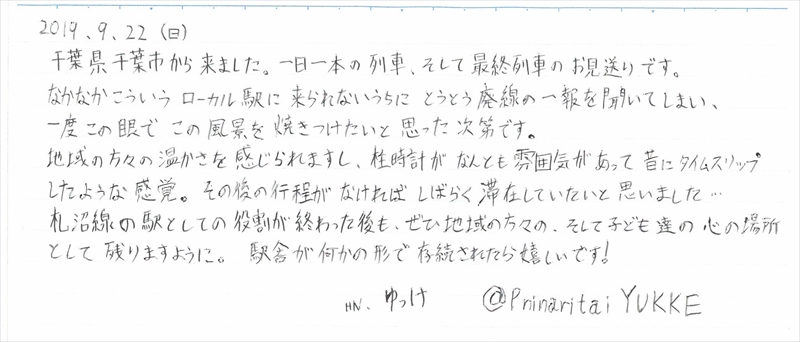 2019.9.22(日)
千葉県千葉市から来ました。一日一本の列車、そして最終列車のお見送りです。
なかなかこういうローカル駅に来られないうちにとうとう廃線の一報を聞いてしまい、
一度この眼でこの風景を焼きつけたいと思った次第です。
地域の方々の温かさを感じられますし、柱時計がなんとも雰囲気があって昔にタイムスリップ
したような感覚。その後の行程がなければしばらく滞在していたいと思いました…
札沼線の駅としての役割が終わった後も、ぜひ地域の方々の、そして子ども達の心の場所
として残りますように。駅舎が何かの形で存続されたら嬉しいです!
HN. ゆっけ @PrinaritaiYUKKE